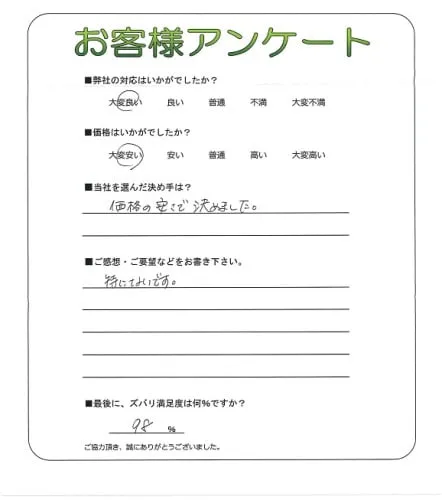 お客様アンケート
■弊社の対応はいかがでしたか？
大変良い 良い 普通 不満 大変不満
■価格はいかがでしたか？
大変安い 安い 普通 高い 大変高い
■当社を選んだ決め手は？
価格の安さで決めました。
■ご感想・ご要望などをお書き下さい。
特にないです。
■最後に、ズバリ満足度は何%ですか？
98 %
ご協力頂き、誠にありがとうございました。